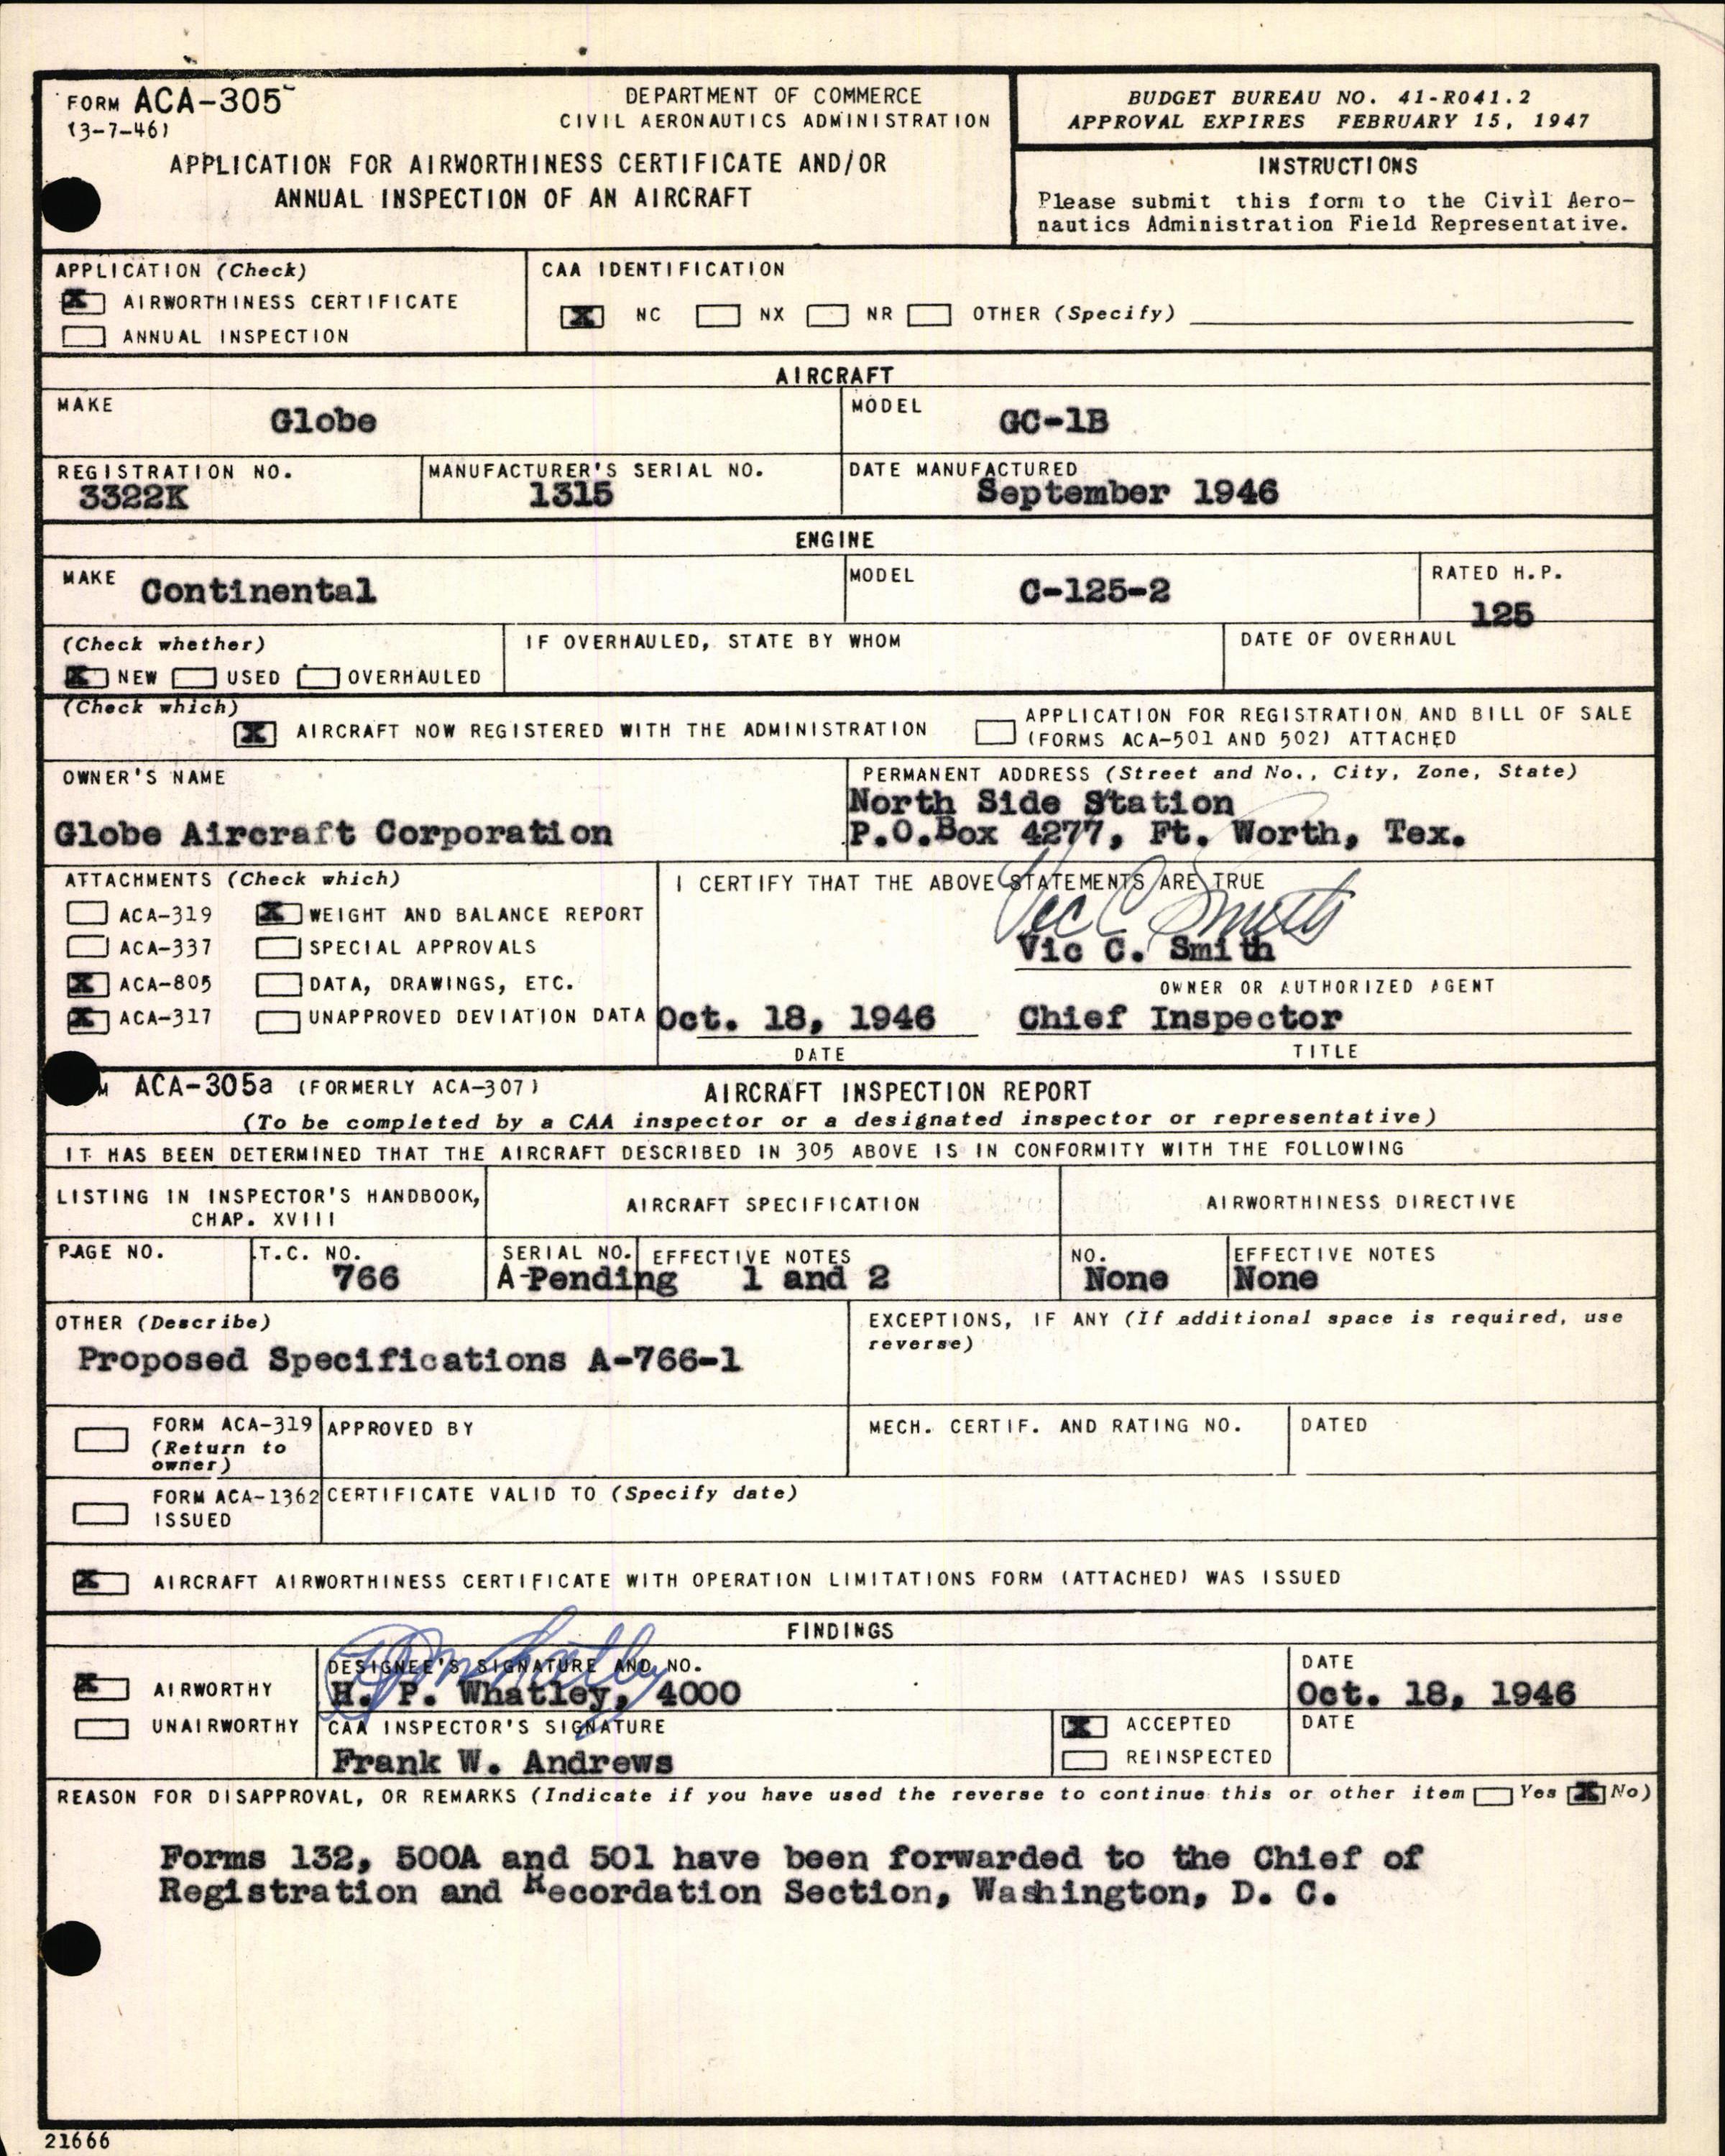 FORM ACA-305
(3-7-46)
DEPARTMENT OF COMMERCE
CIVIL AERONAUTICS ADMINISTRATION
APPLICATION FOR AIRWORTHINESS CERTIFICATE AND/OR
ANNUAL INSPECTION OF AN AIRCRAFT
BUDGET BUREAU NO. 41-R041.2
APPROVAL EXPIRES FEBRUARY 15, 1947
INSTRUCTIONS
Please submit this form to the Civil Aero-
nautics Administration Field Representative.
APPLICATION (Check)
X AIRWORTHINESS CERTIFICATE
ANNUAL INSPECTION
CAA IDENTIFICATION
X NC NX NR OTHER (Specify)
AIRCRAFT
MAKE
Globe
MODEL
GC-1B
REGISTRATION NO.
3322K
MANUFACTURER'S SERIAL NO.
1315
DATE MANUFACTURED
September 1946
ENGINE
MAKE Continental
MODEL
C-125-2
RATED H.P.
125
(Check whether)
X NEW USED OVERHAULED
IF OVERHAULED, STATE BY WHOM
DATE OF OVERHAUL
(Check which)
X AIRCRAFT NOW REGISTERED WITH THE ADMINISTRATION
APPLICATION FOR REGISTRATION AND BILL OF SALE
(FORMS ACA-501 AND 502) ATTACHED
OWNER'S NAME
Globe Aircraft Corporation
PERMANENT ADDRESS (Street and No., City, Zone, State)
North Side Station
P.O.Box 4277, Ft. Worth, Tex.
ATTACHMENTS (Check which)
ACA-319 X WEIGHT AND BALANCE REPORT
ACA-337 SPECIAL APPROVALS
X ACA-805 DATA, DRAWINGS, ETC.
X ACA-317 UNAPPROVED DEVIATION DATA
I CERTIFY THAT THE ABOVE STATEMENTS ARE TRUE
Vic C Smith
Vic C. Smith
OWNER OR AUTHORIZED AGENT
Oct. 18, 1946 Chief Inspector
DATE TITLE
M ACA-305a (FORMERLY ACA-307) AIRCRAFT INSPECTION REPORT
(To be completed by a CAA inspector or a designated inspector or representative)
IT HAS BEEN DETERMINED THAT THE AIRCRAFT DESCRIBED IN 305 ABOVE IS IN CONFORMITY WITH THE FOLLOWING
LISTING IN INSPECTOR'S HANDBOOK,
CHAP. XVIII
AIRCRAFT SPECIFICATION
AIRWORTHINESS DIRECTIVE
PAGE NO.
T.C. NO.
766
SERIAL NO.
A-Pending
EFFECTIVE NOTES
1 and 2
NO.
None
EFFECTIVE NOTES
None
OTHER (Describe)
Proposed Specifications A-766-1
EXCEPTIONS, IF ANY (If additional space is required, use
reverse)
FORM ACA-319
(Return to
owner)
APPROVED BY
MECH. CERTIF. AND RATING NO.
DATED
FORM ACA-1362
ISSUED
CERTIFICATE VALID TO (Specify date)
X AIRCRAFT AIRWORTHINESS CERTIFICATE WITH OPERATION LIMITATIONS FORM (ATTACHED) WAS ISSUED
FINDINGS
X AIRWORTHY
UNAIRWORTHY
DESIGNEE'S SIGNATURE AND NO.
H. P. Whatley, 4000
DATE
Oct. 18, 1946
CAA INSPECTOR'S SIGNATURE
Frank W. Andrews
X ACCEPTED
REINSPECTED
DATE
REASON FOR DISAPPROVAL, OR REMARKS (Indicate if you have used the reverse to continue this or other item Yes X No)
Forms 132, 500A and 501 have been forwarded to the Chief of
Registration and Recordation Section, Washington, D. C.
21666